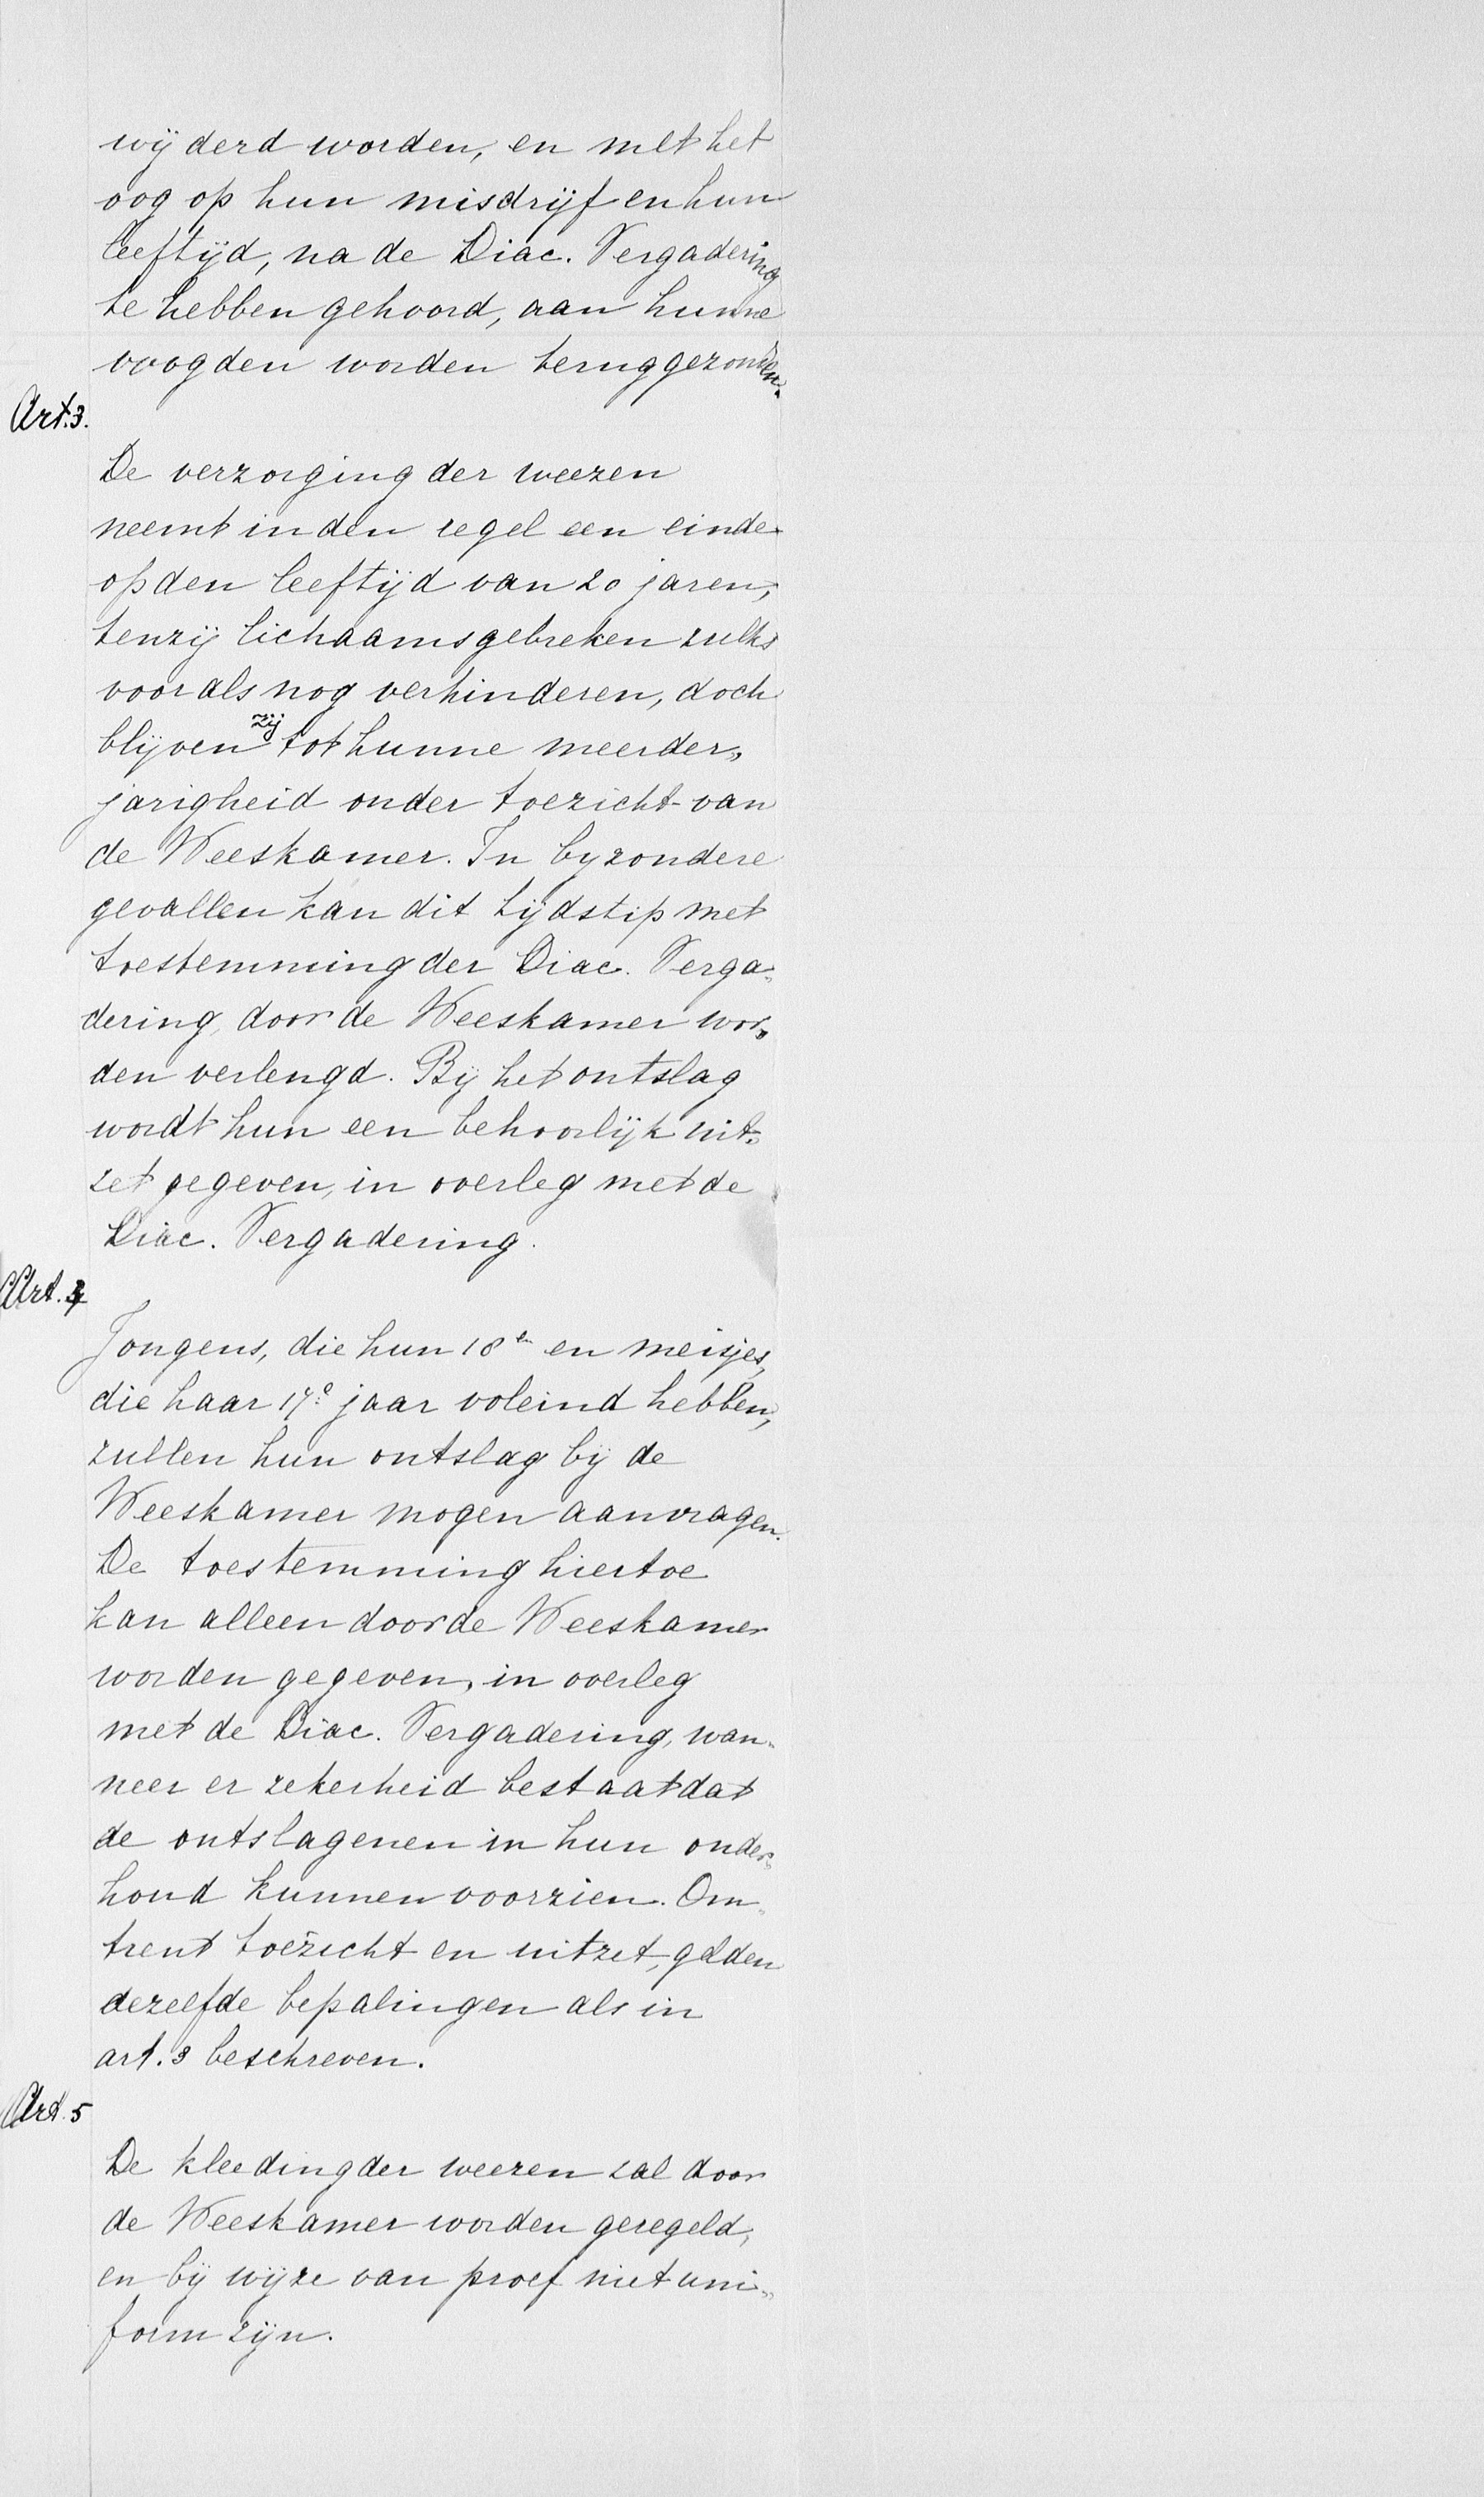 wijderd worden, en met het
oog op hun misdrijf en hun
leeftijd, na de Diac. Vergadering
te hebben gehoord, aan hunne
voogden worden teruggezonden.
Art. 3.
De verzorging der weezen
neemt in den regel een einde
op den leeftijd van 20 jaren,
tenzij lichaamsgebreken zulks
voor als nog verhinderen, doch
blijven zij tot hunne meerder„
jarigheid onder toezicht van
de Weeskamer. In byzondere
gevallen kan dit tijdstip met
toestemming der Diac. Verga„
dering, door de Weeskamer wor„
den verlengd. Bij het ontslag
wordt hun een behoorlijk uit„
zet gegeven, in overleg met de
Diac. Vergadering.
Art. 4
Jongens, die hun 18en en meisjes,
die haar 17e jaar voleind hebben,
zullen hun ontslag bij de
Weeskamer mogen aanvragen.
De toestemming hiertoe
kan alleen door de Weeskamer
worden gegeven, in overleg
met de Diac. Vergadering, wan„
neer er zekerheid bestaat dat
de ontslagenen in hun onder„
houd kunnen voorzien. Om„
trent toezicht en uitzet, gelden
dezelfde bepalingen als in
art. 3 beschreven.
Art. 5
De kleeding der weezen zal door
de Weeskamer worden geregeld,
en bij wijze van proef niet uni„
form zijn.